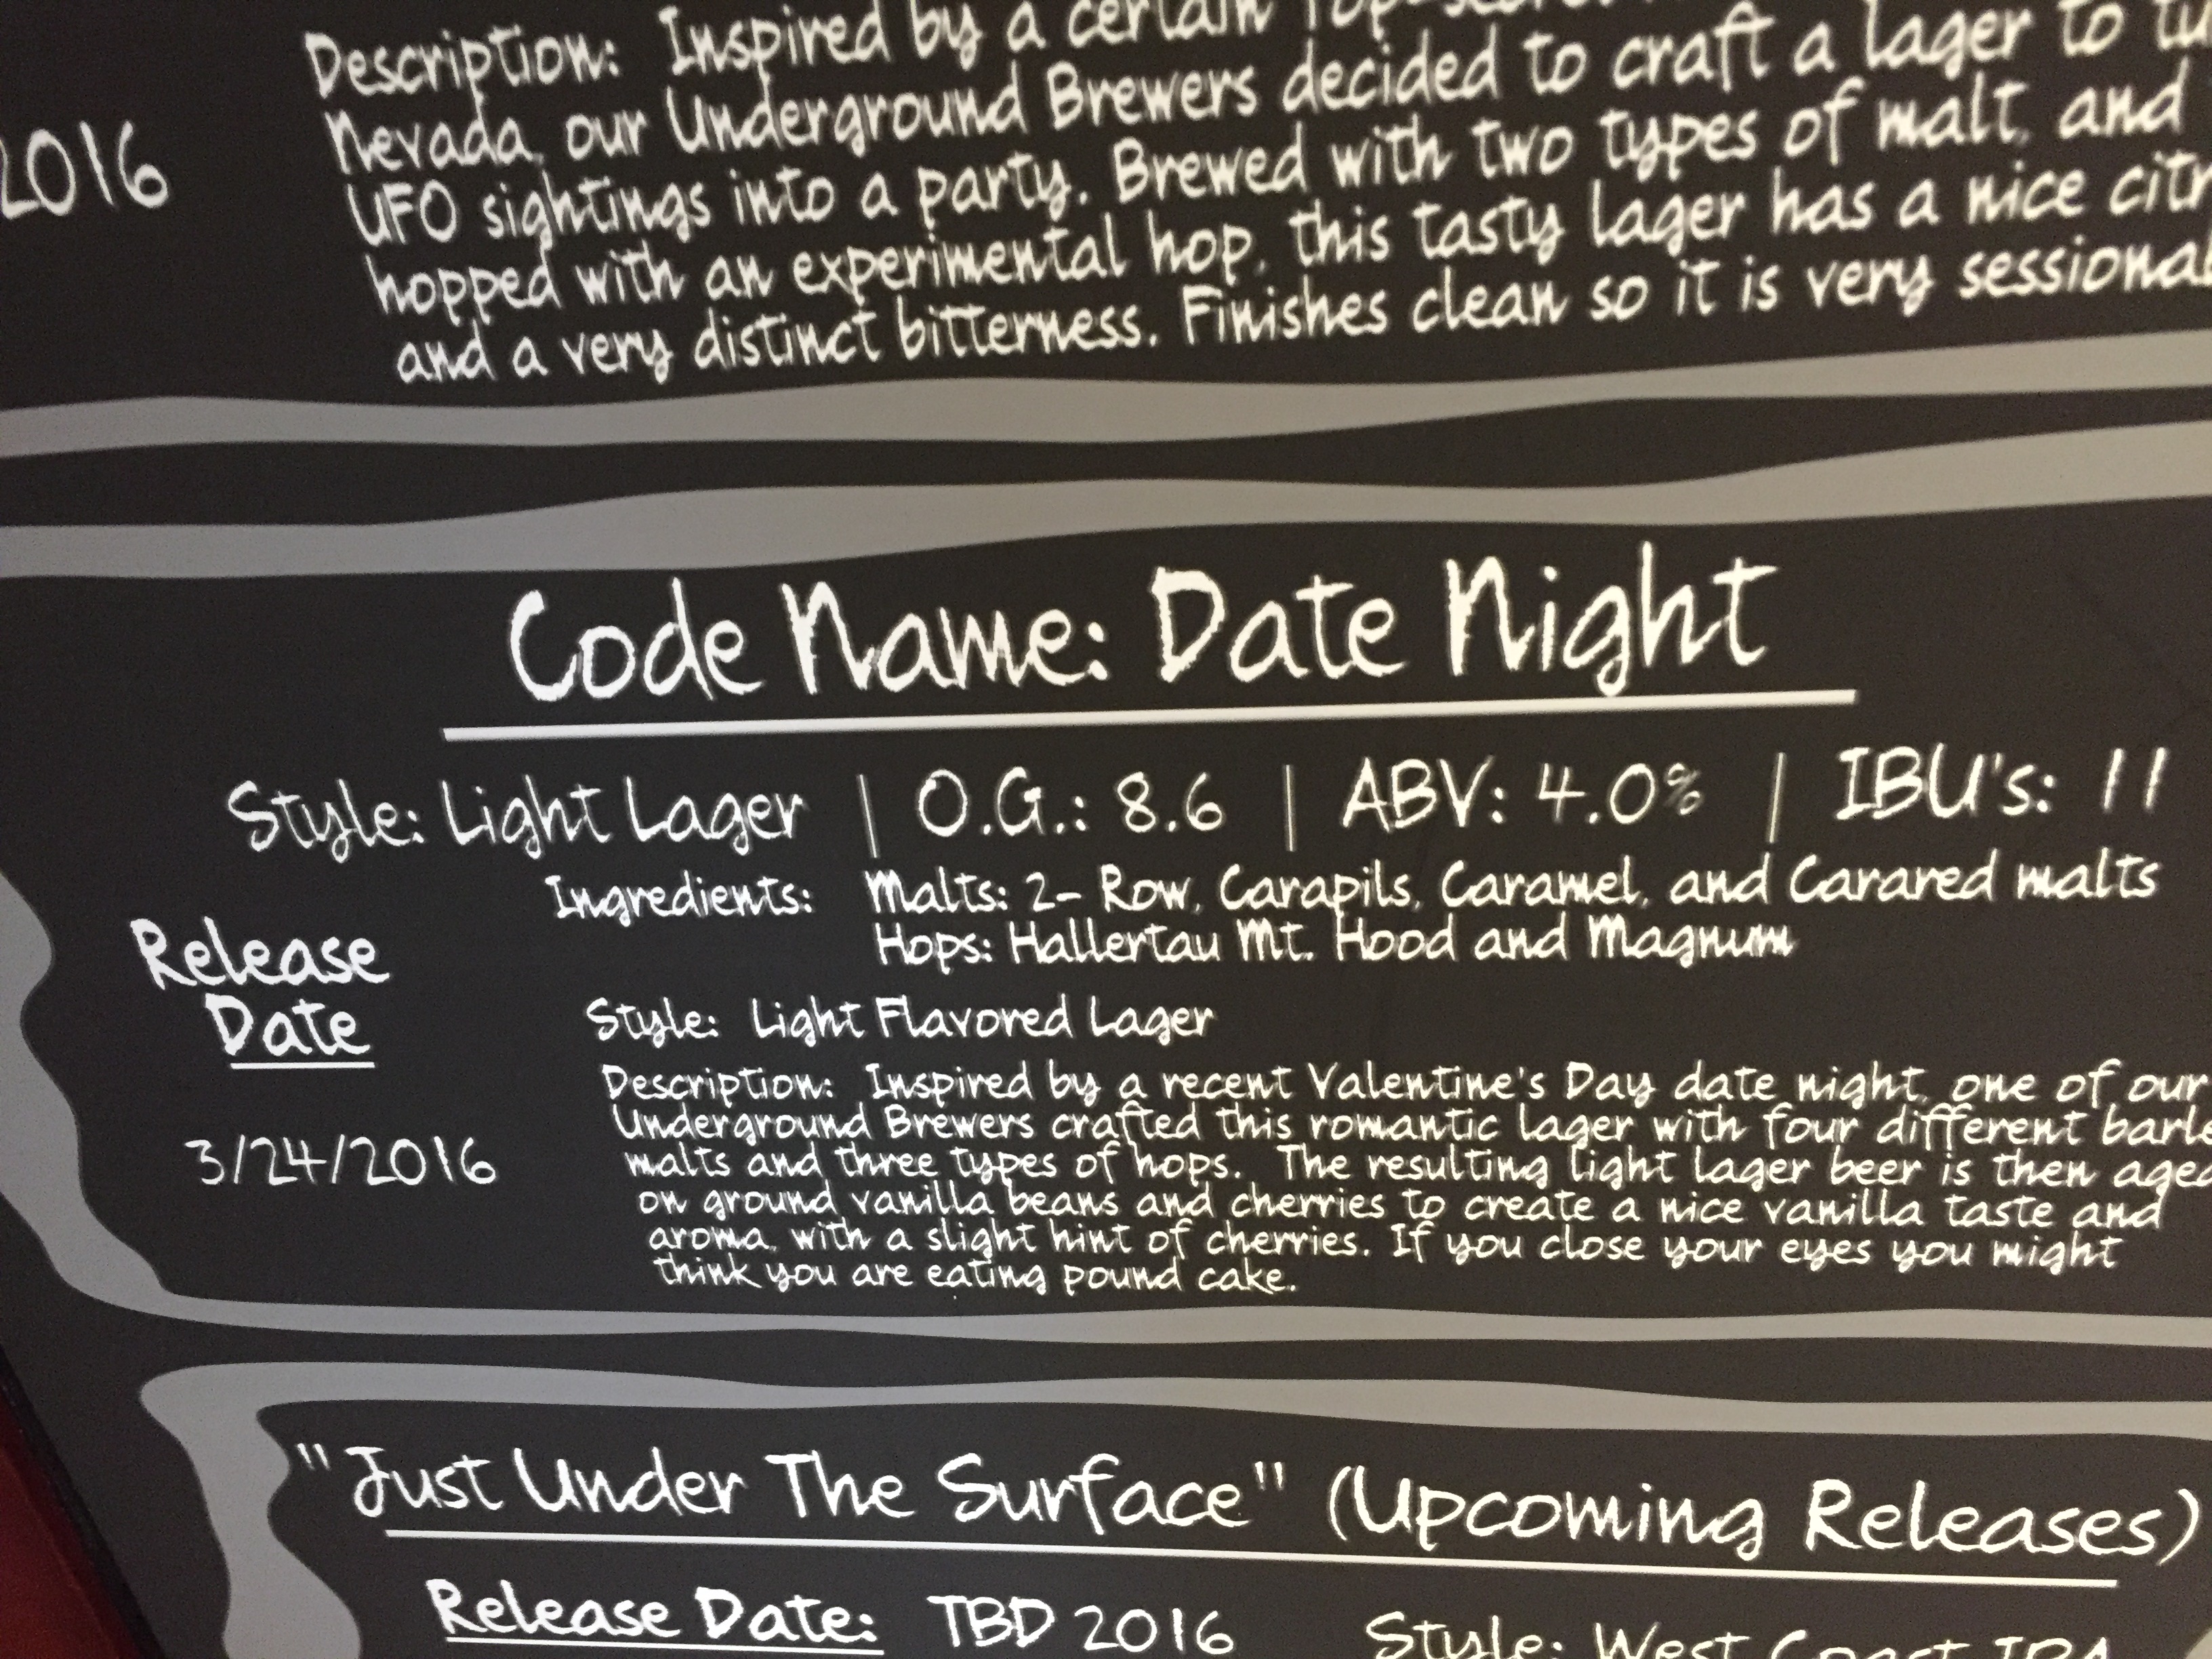 Description: Inspired by a certain
Nevada, our Underground Brewers decided to craft a lager to
2016
UFO sightings into a party. Brewed with two types of malt, and
hopped with an experimental hop, this tasty lager has a nice
and a very distinct bitterness. Finishes clean so it is very
Code Name: Date Night
Style: Light Lager | O.G.: 8.6 | ABV: 4.0% | IBU's: 11
Ingredients: Malts: 2- Row, Carapils, Caramel, and Carared malts
Hops: Hallertau Mt. Hood and Magnum
Release
Date
3/24/2016
Style: Light Flavored Lager
Description: Inspired by a recent Valentine's Day date night, one of our
Underground Brewers crafted this romantic lager with four different barle
malts and three types of hops. The resulting light lager beer is then aged
on ground vanilla beans and cherries to create a nice vanilla taste and
aroma, with a slight hint of cherries. If you close your eyes you might
think you are eating pound cake.
"Just Under The Surface" (Upcoming Releases)
Release Date: TBD 2016 Style: West Coast IPA